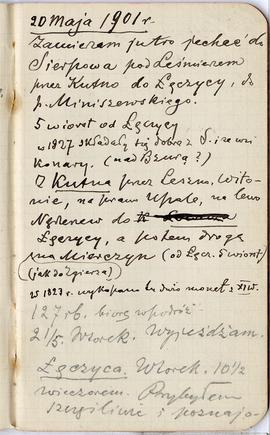 20 Maja 1901 r.
Zamierzam jutro jechać do
Sierpowa pod Leśmierzem
przez Kutno do Łęczycy, do
p. Miniszewskiego.
5 wiorst od Łęczycy
w 1827 składały się dobra z S. i ze wsi
Konary. (nad Bzurą?)
Z Kutna przez Leszno, Wito-
nię, na prawo Upale, na lewo
do
Łęczycy, a potem drogą
na Mierczyn (od Łęcz. 5 wiorst)
(jak do Zgierza)
w 1827 r. wykopano tu dwie monet z XI w.
127 rb. biorę w podróż.
21/5. Wtorek. Wyjeżdżam.
Łęczyca. Wtorek. 10 1/2
wieczorem. Przybyłem
szczęśliwie i poznaję